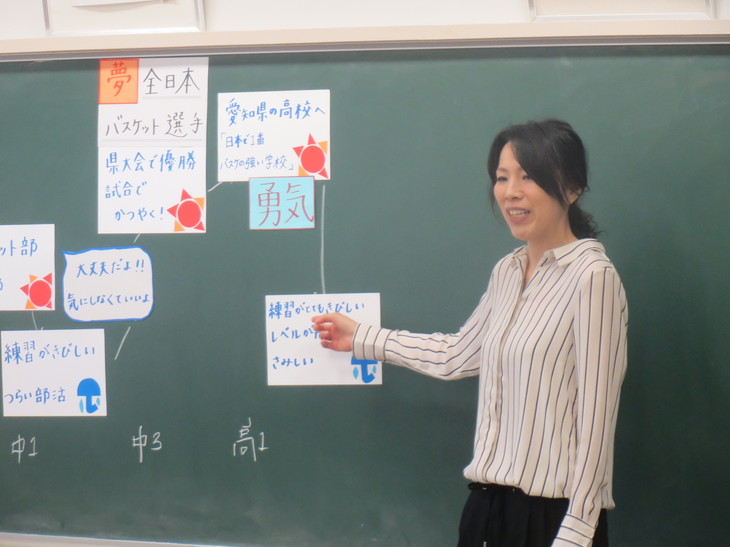 夢 全日本
バスケット選手
県大会で優勝
試合で
かつやく!
愛知県の高校へ
「日本で1番
バスケの強い学校」
勇気
ット部
大丈夫だよ!!
気にしなくていいよ
練習がきびしい
つらい部活
練習がとてもきびしい
レベルが
さみしい
中1
中3
高1